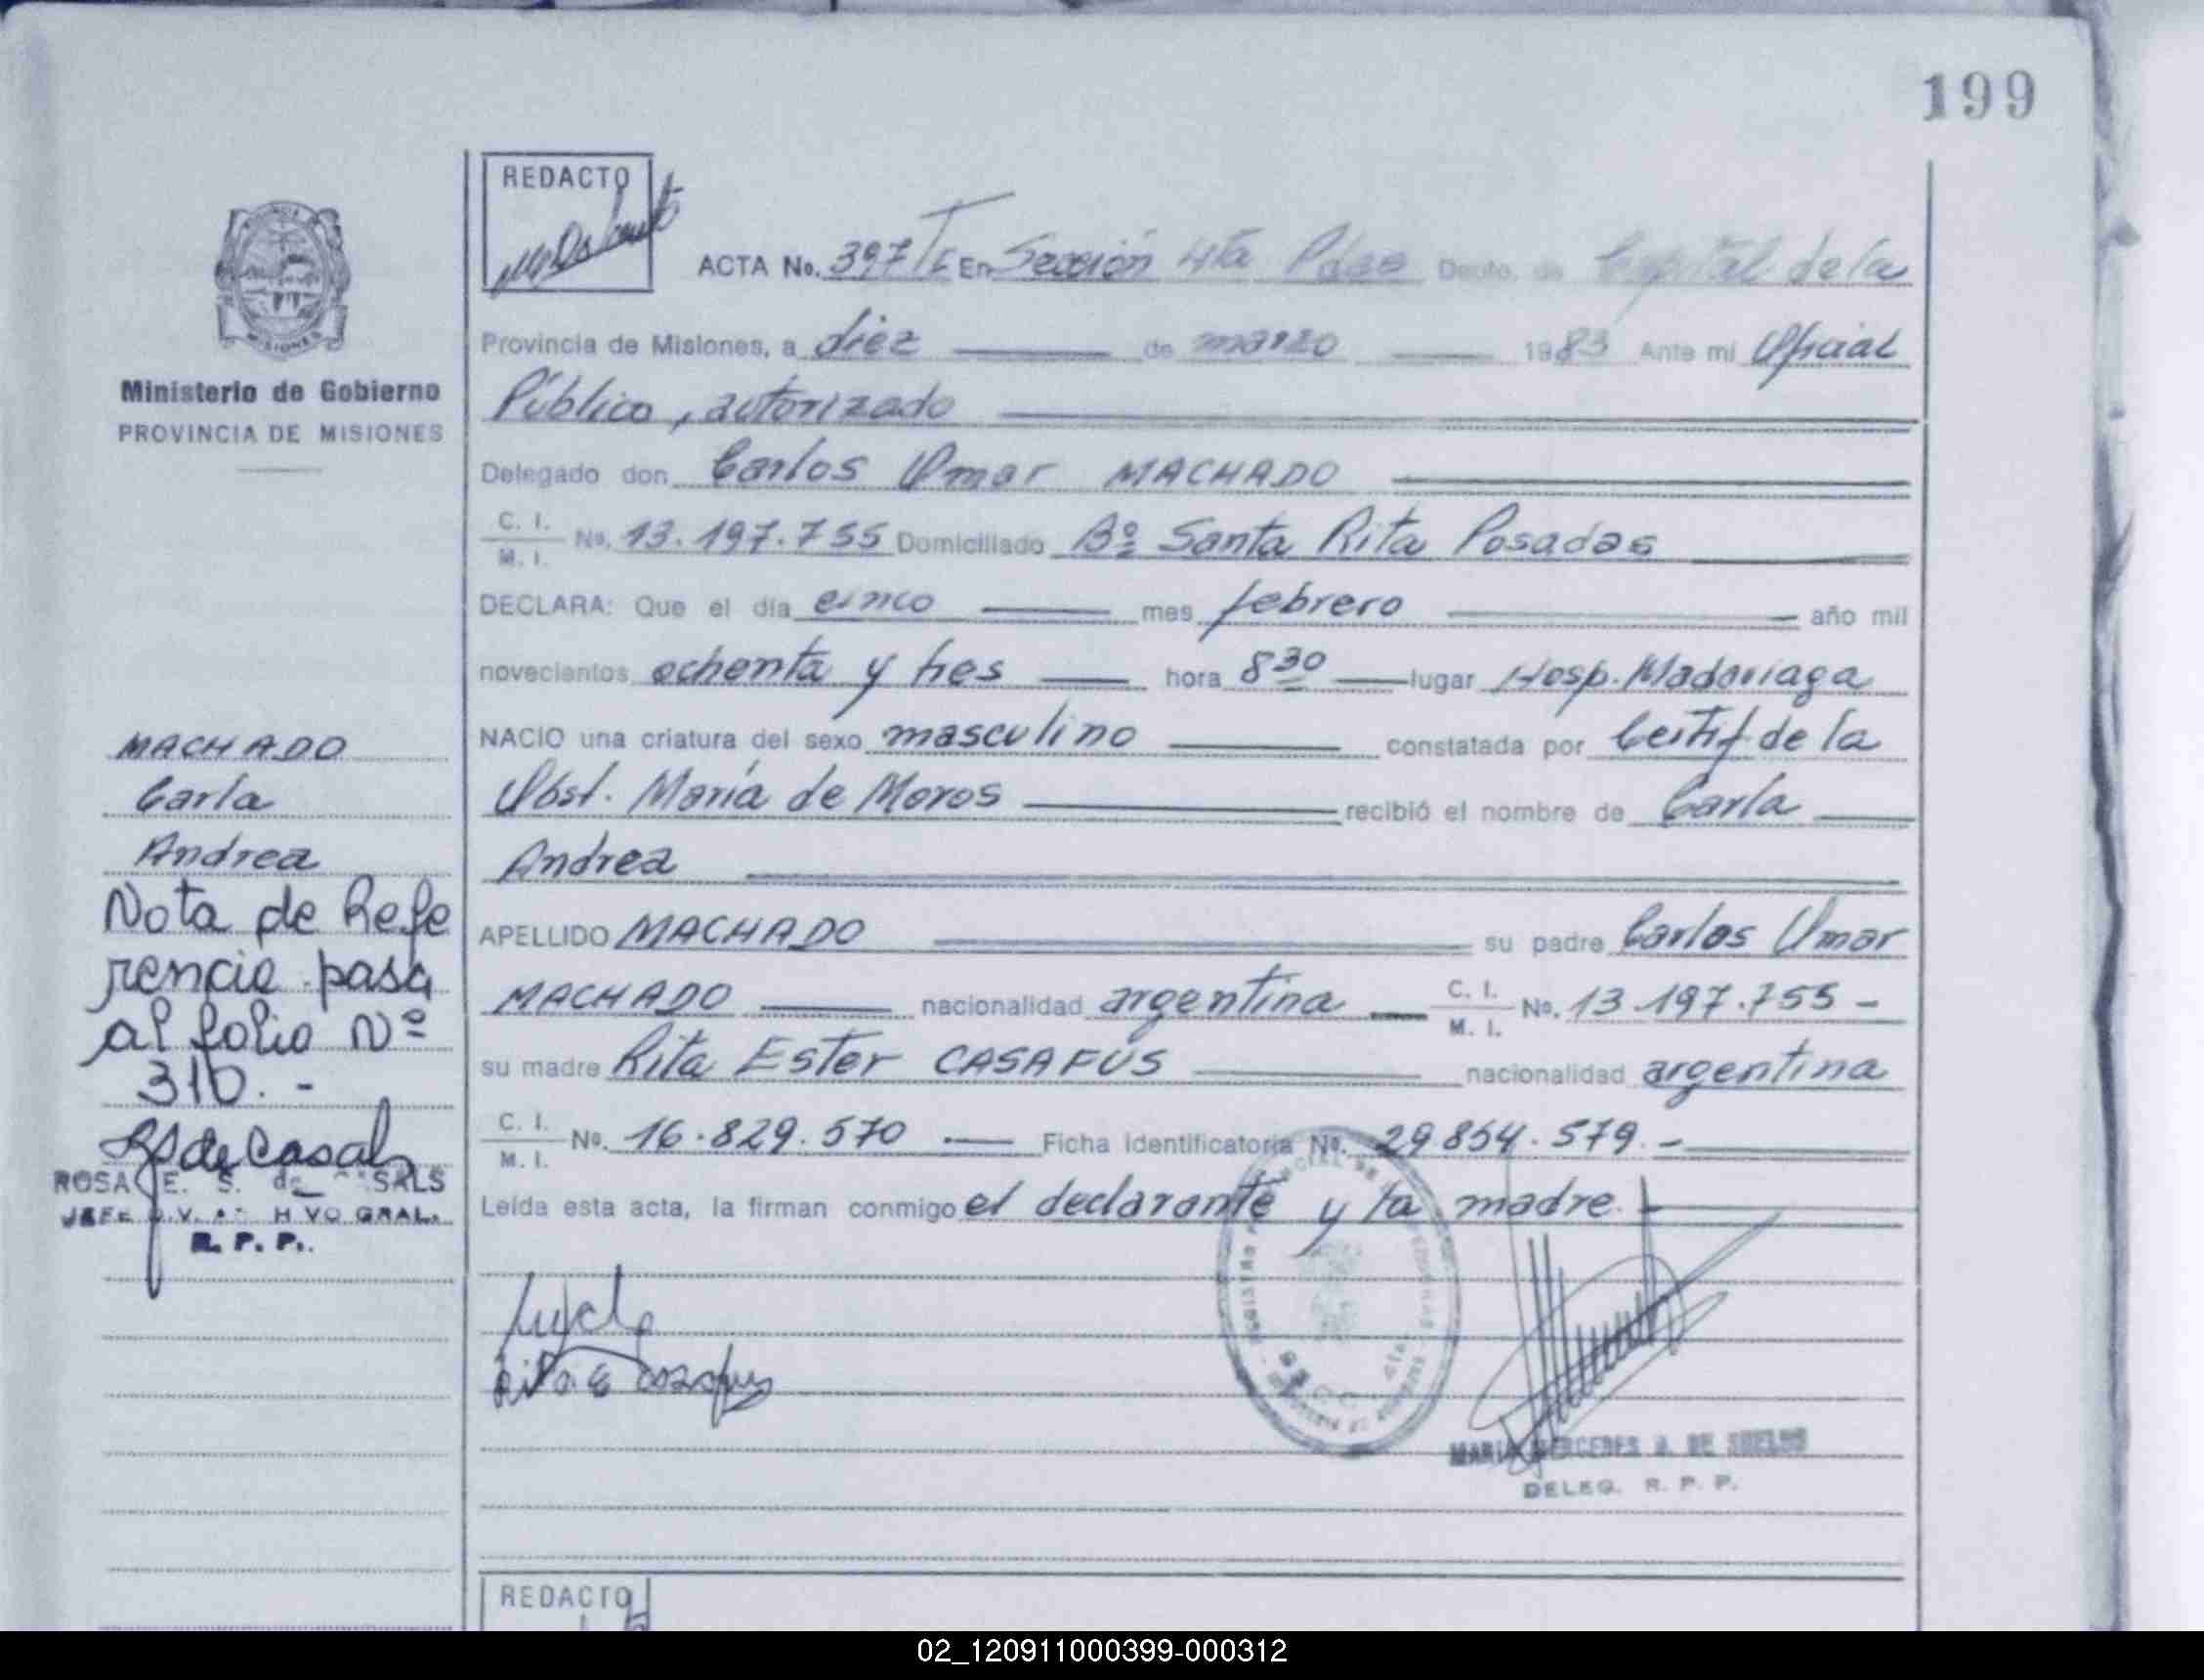 199
REDACTO
ACTA No. 397 T E En Sección 4ta Pdas Depto. de Capital de la
Provincia de Misiones, a diez de marzo 1983 Ante mi Oficial
Público, autorizado
Delegado don Carlos Omar MACHADO
C. I.
M. I. No. 13.197.755 Domiciliado Bº Santa Rita Posadas
DECLARA: Que el día cinco mes febrero año mil
novecientos ochenta y tres hora 8 30 lugar Hosp. Madariaga
NACIO una criatura del sexo masculino constatada por Certif de la
Obst. María de Moros recibió el nombre de Carla
Andrea
APELLIDO MACHADO su padre Carlos Omar
MACHADO nacionalidad argentina C. I. M. I. No. 13.197.755 -
su madre Rita Ester CASAFUS nacionalidad argentina
C. I.
M. I. No. 16.829.570 Ficha identificatoria No. 29.854.579.-
Leída esta acta, la firman conmigo el declarante y la madre.-
Rita E Casafus
MARIA MERCEDES DE
DELEG. R. P. P.
REDACTO
MISIONES
Ministerio de Gobierno
PROVINCIA DE MISIONES
MACHADO
Carla
Andrea
Nota de Refe
rencia pasa
al folio Nº
310.-
RS de Casals
ROSA E. S. de CASALS
JEFE DIV. ARCHIVO GRAL.
R. P. P.
02_120911000399-000312